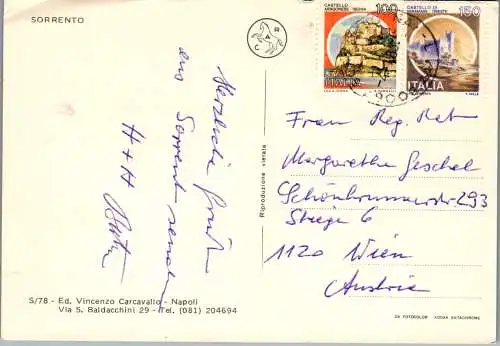 SORRENTO
C A R
Herzliche Grüße
aus Sorrent senden
H + H
S/78 - Ed. Vincenzo Carcavallo - Napoli
Via S. Baldacchini 29 - Tel. (081) 204694
Riproduzione vietata
CASTELLO ARAGONESE ISCHIA 100
ITALIA
CASTELLO DI MIRAMARE TRIESTE 150
ITALIA
Frau Reg. Rat
Margarethe Geschel
Schönbrunnerstr 293
Stiege 6
1120 Wien
Austria
DA FOTOCOLOR KODAK EKTACHROME